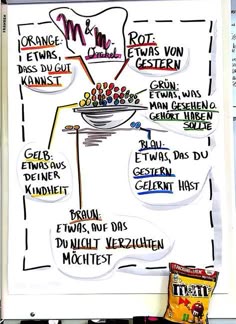 M & M
Orakel
ORANGE:
ETWAS,
DASS DU GUT
KANNST
ROT:
ETWAS VON
GESTERN
GRÜN:
ETWAS, WAS
MAN GESEHEN O.
GEHÖRT HABEN
SOLLTE
GELB:
ETWAS AUS
DEINER
KINDHEIT
BLAU:
ETWAS, DAS DU
GESTERN
GELERNT HAST
BRAUN:
ETWAS, AUF DAS
DU NICHT VERZICHTEN
MÖCHTEST
m&m's